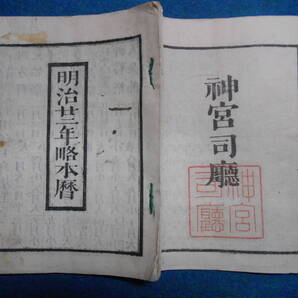 神宮司廳
神宮
司廳
明治廿二年略本暦